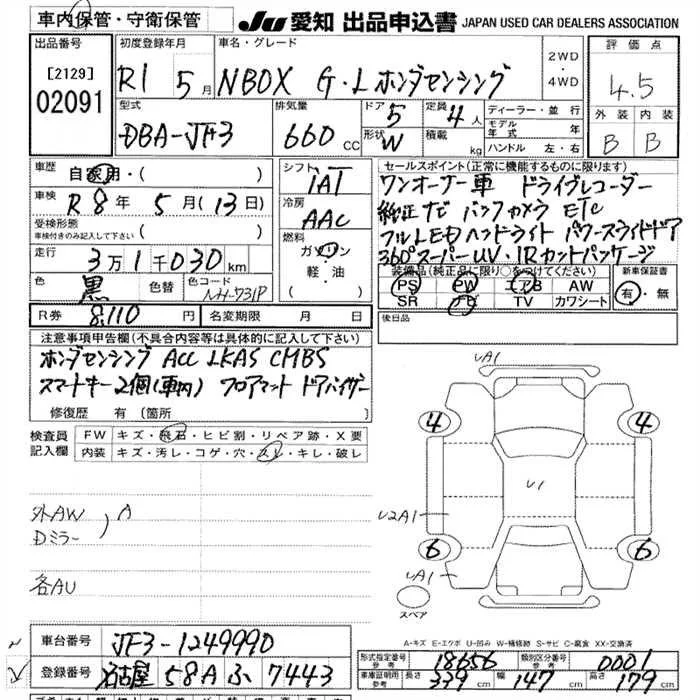 車内保管・守衛保管 JU 愛知 出品申込書 JAPAN USED CAR DEALERS ASSOCIATION
出品番号 初度登録年月 車名・グレード 評価点
[2129] R1 5月 NBOX G・Lホンダセンシング 2WD・4WD 4.5
02091
型式 排気量 ドア 定員 ディーラー・並行 外装 内装
DBA-JF3 660cc 5 4人 モデル年式 年 B B
形状 W 積載 kg ハンドル 左・右
車歴 自家用・( ) シフト セールスポイント(正常に機能するものに限ります)
車検 R8年5月(13日) IAT ワンオーナー車 ドライブレコーダー
受検形態 冷房 純正ナビ バックカメラ ETC
車検付きのみ記入して下さい ( ) AAC フルLEDヘッドライト パワースライドドア
走行 3万1千030km 燃料 360°スーパーUV・IRカットパッケージ
ガソリン 装備品(純正品に限り○をつけてください) 新車保証書
色 黒 色替 色コード NH-731P 軽・油 PS PW エアB AW 有・無
( ) SR ナビ TV カワシート
R券 8,110円 名変期限 月 日 後日品
注意事項申告欄(不具合内容等は具体的に記入して下さい)
ホンダセンシング ACC LKAS CMBS
スマートキー2個(車内) フロアマット ドアバイザー
修復歴 有 (箇所 )
検査員 FW キズ・飛石・ヒビ割・リペア跡・X要
記入欄 内装 キズ・汚レ・コゲ・穴・スレ・キレ・破レ
UA1
4 4
U1
U2A1
6 6
UA1
スペア
外AW
Dミラー ) A
各AU
A-キズ E-エクボ U-凹み W-補修跡 S-サビ C-腐食 XX-交換済
車台番号 JF3-1249990
登録番号 名古屋 58A ふ 7443
形式指定番号 参考 18656 類別区分番号 参考 0001
車庫証明用 参考 長さ 339cm 幅 147cm 高さ 179cm